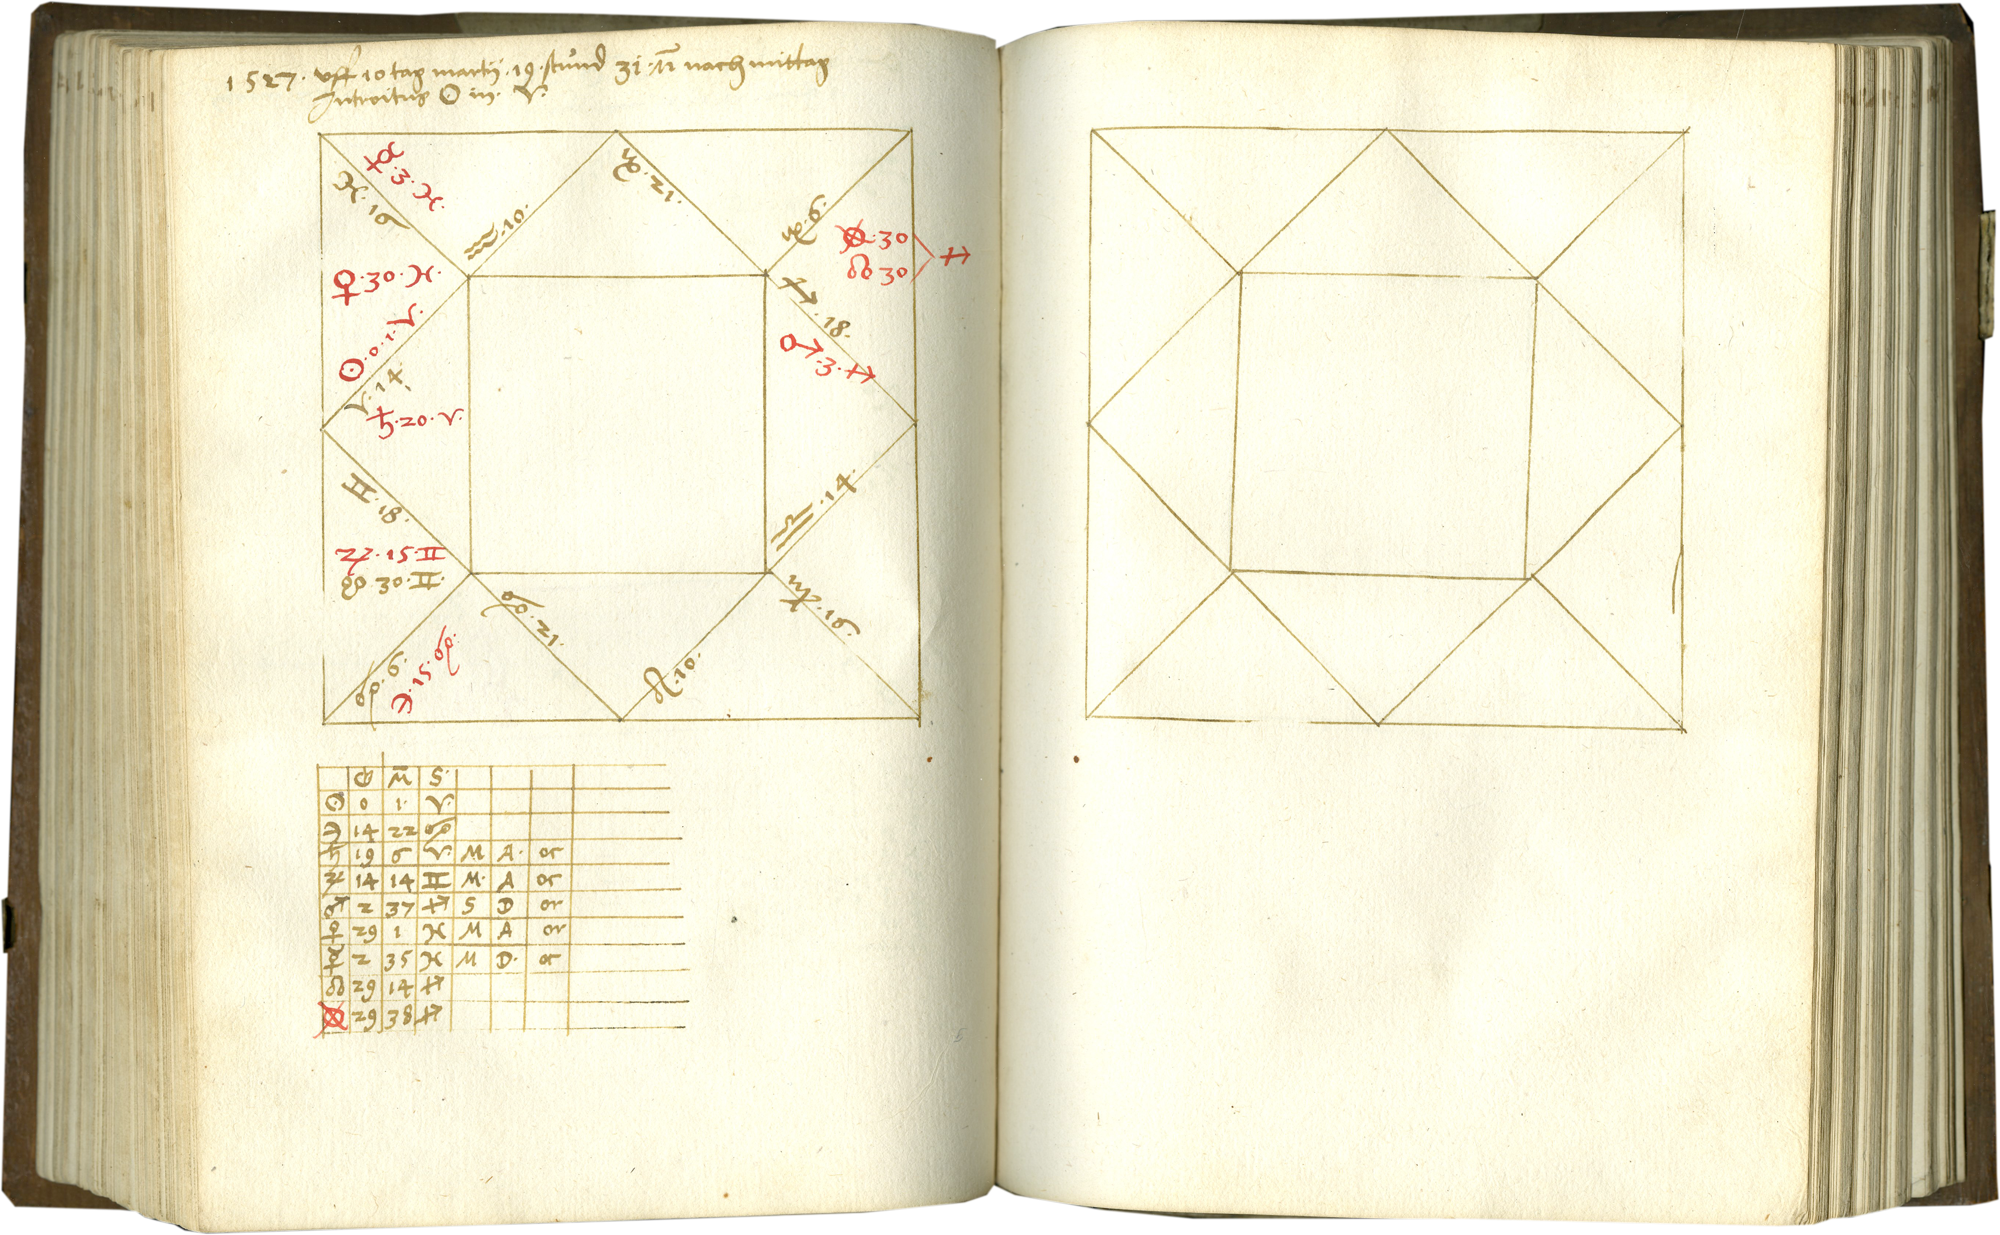 1527. vff 10 tag martij. 19. stund 31. M nach mittag
Introitus ☉ in. ♈.
☿.3.♓.
♓.16
♒.10.
♑.21.
♐.6.
⊗.30
☊ 30
♐
♀.30.♓.
☉.0.1.♈.
♈.14.
♄.20.♈.
♐.18.
♂.3.♐
♊.18.
♎.14
♃.15.♊
☋ 30.♊.
♋.21.
♏.16.
♋.6.
☽.15.♋.
♌.10.
M S.
☉ 0 1. ♈.
☽ 14 22 ♋
♄ 19 6 ♈. M A. or
♃ 14 14 ♊ M. A or
♂ 2 37 ♐ S D or
♀ 29 1 ♓ M A or
☿ 2 35 ♓ M D. or
☊ 29 14 ♐
⊗ 29 38 ♐